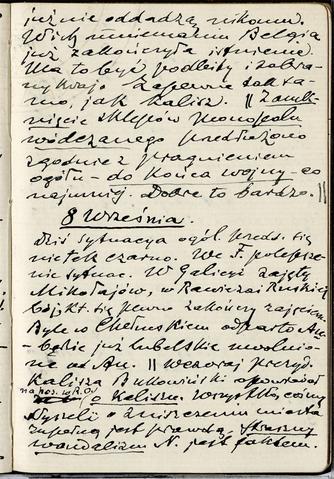 już nie oddadzą nikomu.
W ich mniemaniu Belgia
już zakończyła istnienie.
Ma to być podbity i zabra-
ny kraj. Zapewne tak sa-
mo, jak Kalisz. || Zamk-
nięcie sklepów monopolu
wódczanego przedłużono
zgodnie z pragnieniem
ogółu - do końca wojny co
najmniej. Dobre to bardzo. ||
8 Września.
Dziś sytuacya ogól. przeds. się
nie tak czarno. We F. polepsze-
nie sytuac. W Galicyi zajęty
Mikołajów, w Rawie zaś Ruskiej
bój, kt. się pewno zakończy zajęciem.
Byle w Chełmskiem odparto Au.
będzie już lubelskie uwolnio-
ne od Au. || Wczoraj prezyd.
Kalisza Bukowiński opowiadał
na pos. w R.O.
o Kaliszu. Wszystko, cośmy
słyszeli o zniszczeniu miasta
zupełną jest prawdą, straszny
wandalizm N. jest faktem.